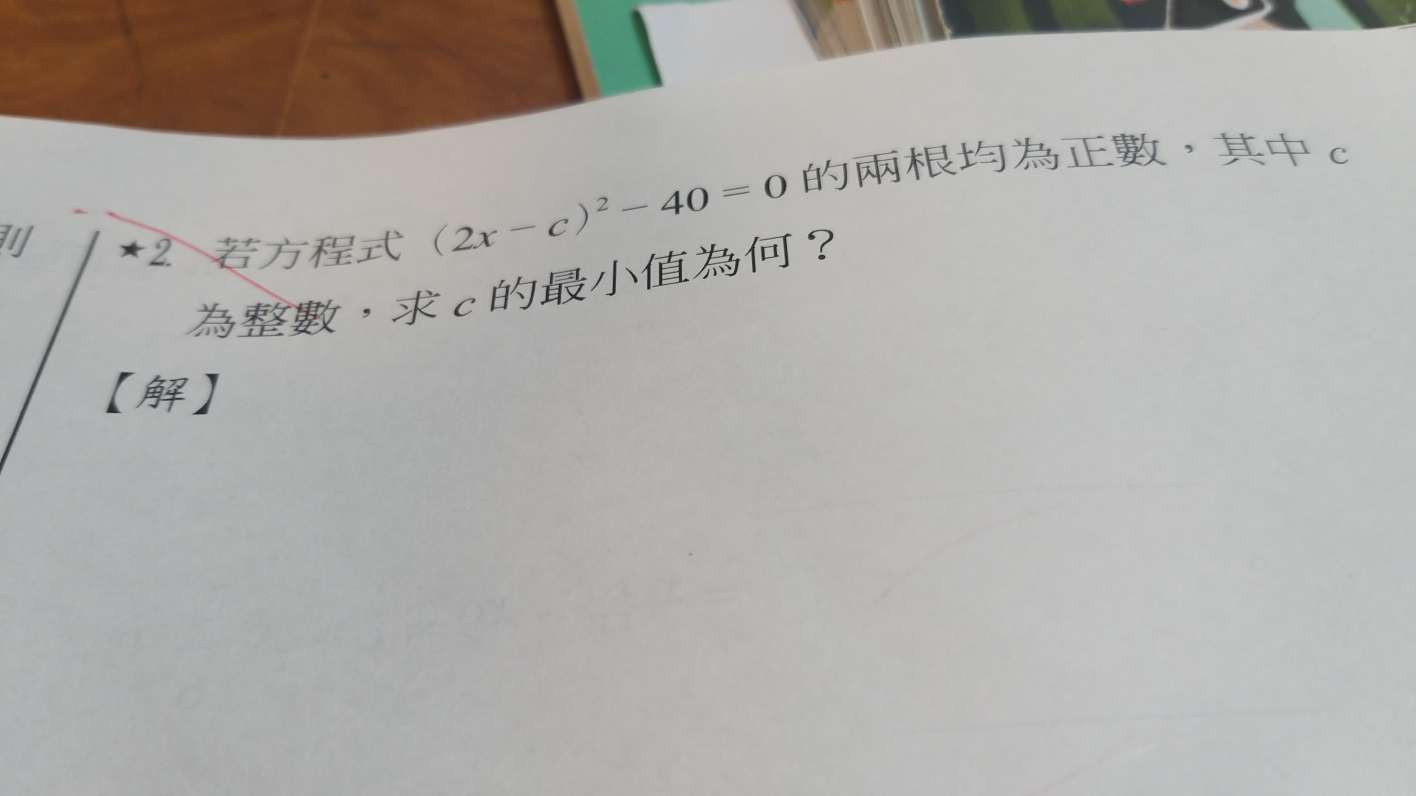 則
★2. 若方程式（2x－c）²－40＝0 的兩根均為正數，其中 c
為整數，求 c 的最小值為何？
【解】